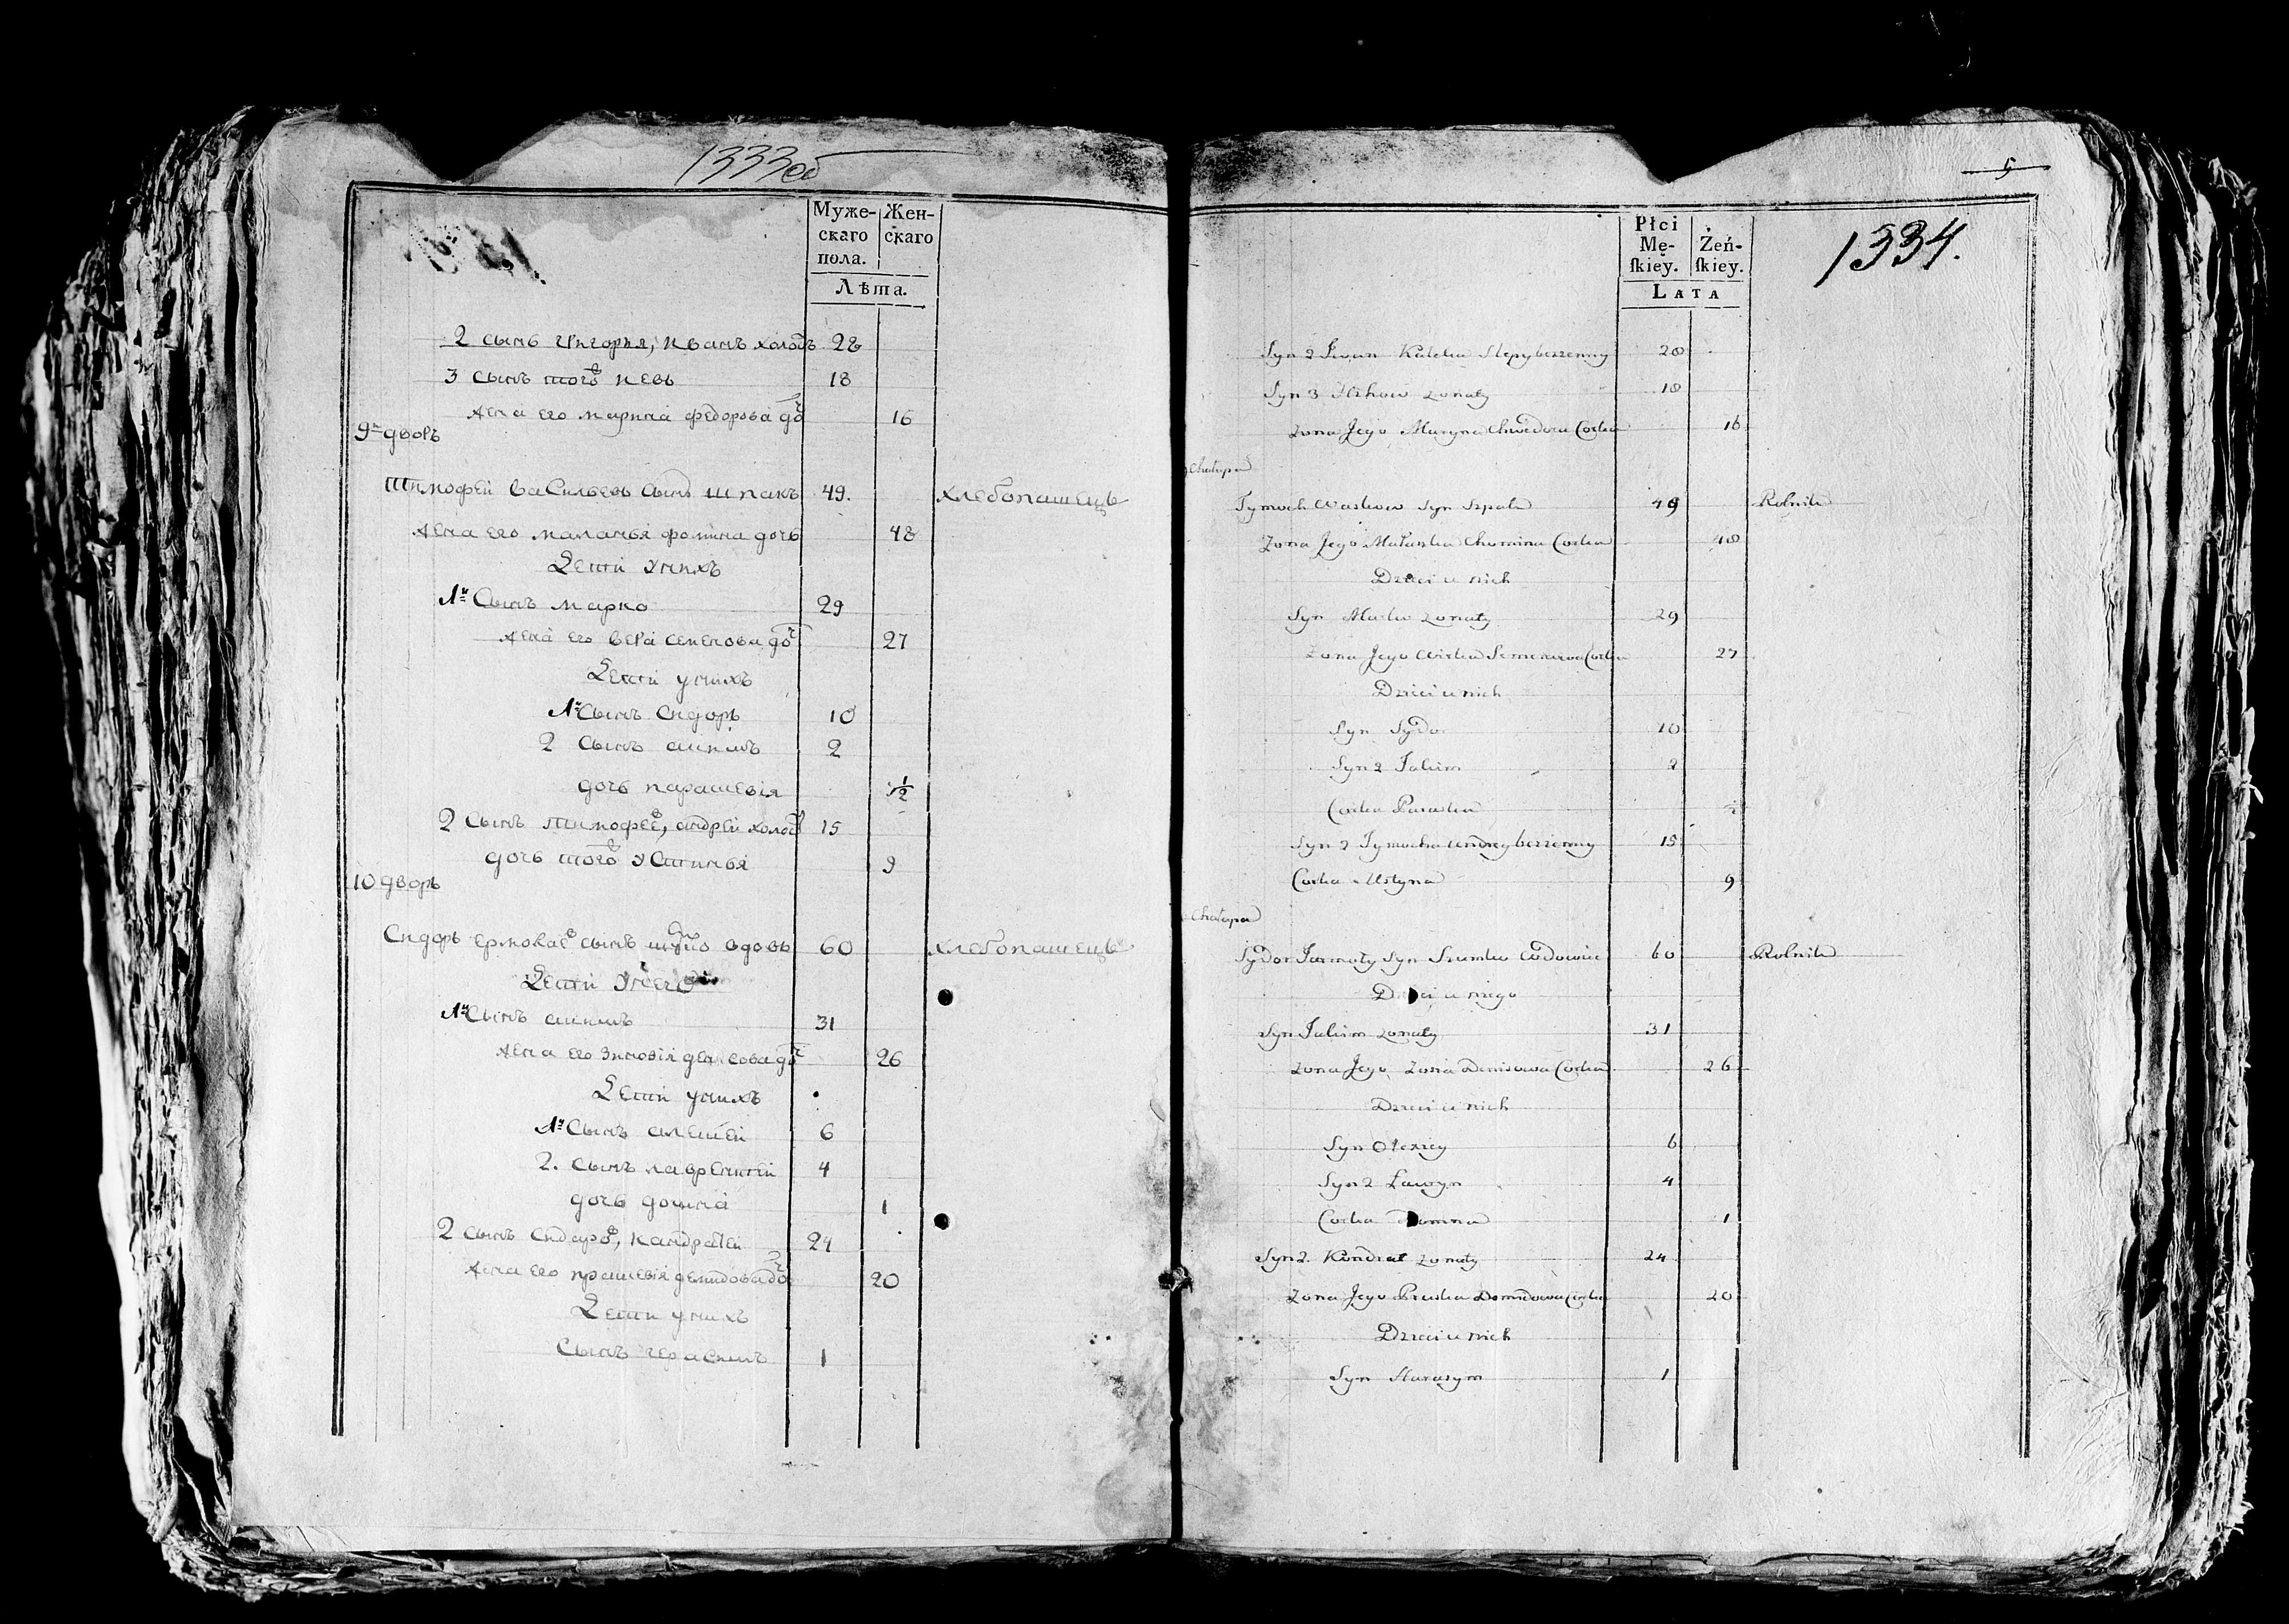 1333об
Муже-
скаго
пола.
Жен-
скаго
Лѣта.
2 сынъ григорья, иванъ холос 28
3 сынъ тогѡ 18
жена его марина федорова дочь 16
9й дворъ
Тимофей васильевъ сынъ шпакъ 49. хлебопашецъ
жена его маланья фомина дочь 48
Дети у нихъ
1й Сынъ марко 29
жена его вера семенова дочь 27
Дети у нихъ
1й Сынъ Сидоръ 10
2 Сынъ акимъ 2
дочь парасковiя 1/2
2 Сынъ тимофеѡ, андрей холос 15
дочь тогѡ Устинья 9
10 дворъ
Сидоръ ермолаеѡ сынъ вдовъ 60 хлебопашецъ
Дети У него
1й Сынъ акимъ 31
жена его Зиновiя денисова дочь 26
Дети у нихъ
1й Сынъ алексей 6
2. Сынъ лаврентей 4
дочь домна 1
2 Сынъ Сидороѡ, кандратей 24
жена его прасковiя демидова дочь 20
Дети у нихъ
Сынъ герасимъ 1
5
1334.
Płci
Mę-
ſkiey.
Żeń-
ſkiey.
LATA
Syn 2 Iwan bezzenny 28
Syn 3 zonaty 18
Zona Jego Maryna Chwedora Corka 16
Chałupa
Tymoch Waskow Syn Szpak 49 Rolnik
Zona Jego Małaszka Chomina Corka 48
Dzieci u nich
Syn Marko zonaty 29
Zona Jego Wirka Semenowa Corka 27
Dzieci u nich
Syn Sydor 10
Syn 2 Jakim 2
Corka Paraska 1/2
Syn 2 Tymocha Andrey bezzenny 15
Corka Ustyna 9
Chałupa
Sydor Jarmoły Syn Szumko Wdowiec 60 Rolnik
Dzieci u niego
Syn Jakim zonaty 31
Zona Jego Zosia Denisowa Corka 26
Dzieci u nich
Syn Olexiey 6
Syn 2 Ławryn 4
Corka Domna 1
Syn 2. Kondrat zonaty 24
Zona Jego Pruska Demidowa Corka 20
Dzieci u nich
Syn Harasym 1